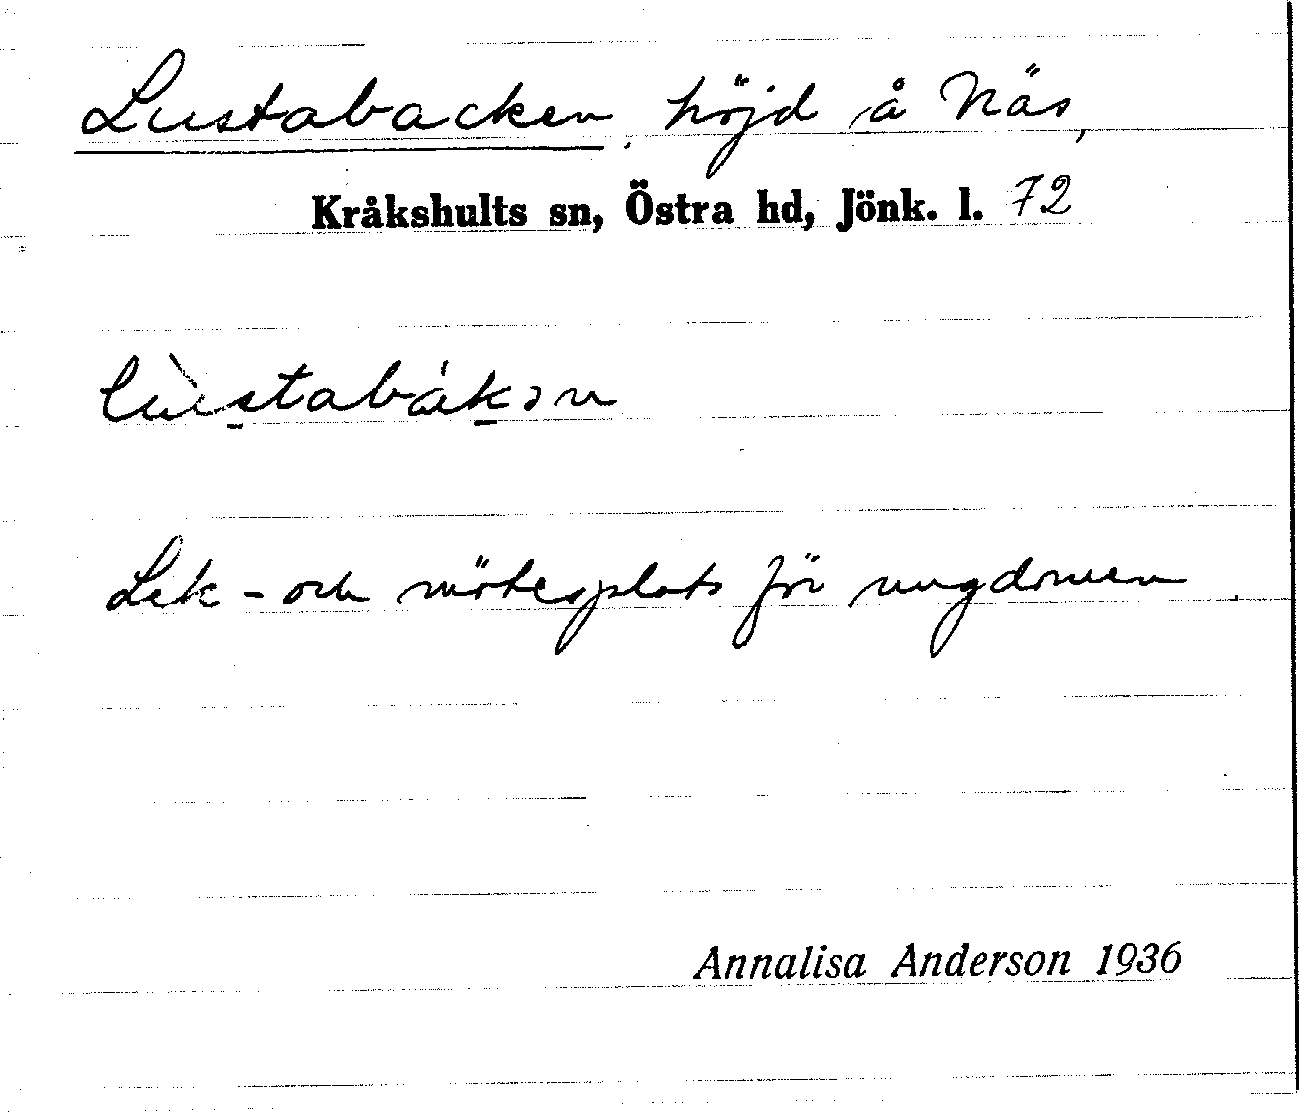 Lustabacken, höjd å Näs,
Kråkshults sn, Östra hd, Jönk. l. 72
lùstabákən
Lek- och mötesplats för ungdomen.
Annalisa Anderson 1936